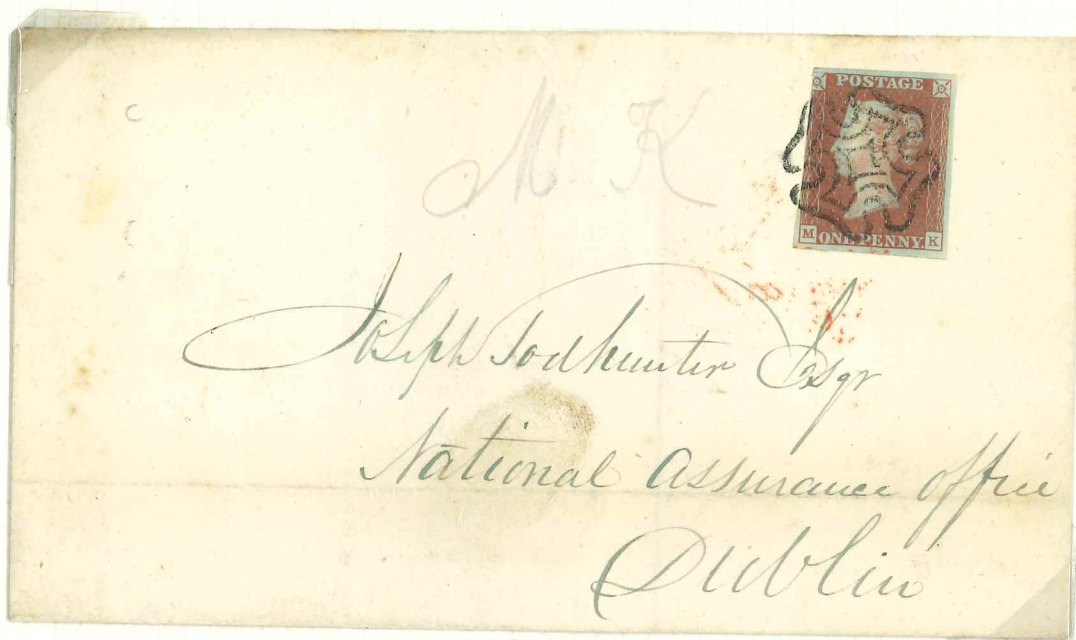 M K
POSTAGE
M ONE PENNY K
Joseph Todhunter Esqr
National Assurance office
Dublin